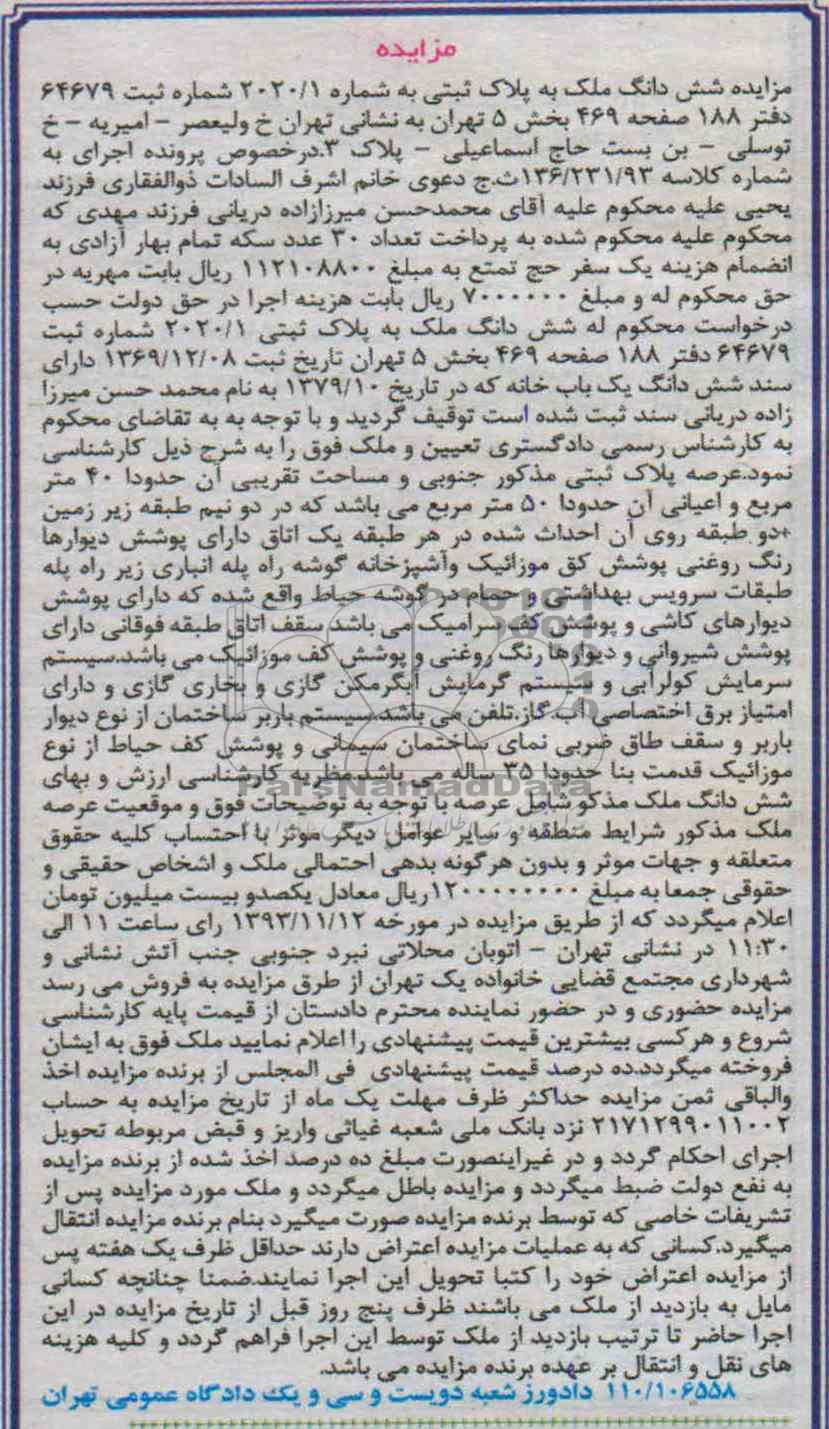 مزایده
مزایده شش دانگ ملک به پلاک ثبتی به شماره ۲۰۲۰/۱ شماره ثبت ۶۴۶۷۹
دفتر ۱۸۸ صفحه ۴۶۹ بخش ۵ تهران به نشانی تهران خ ولیعصر – امیریه – خ
توسلی – بن بست حاج اسماعیلی – پلاک ۳.درخصوص پرونده اجرای به
شماره کلاسه ۱۳۶/۲۳۱/۹۳ث.ج دعوی خانم اشرف السادات ذوالفقاری فرزند
یحیی علیه محکوم علیه آقای محمدحسن میرزازاده دریانی فرزند مهدی که
محکوم علیه محکوم شده به پرداخت تعداد ۳۰ عدد سکه تمام بهار آزادی به
انضمام هزینه یک سفر حج تمتع به مبلغ ۱۱۲۱۰۸۸۰۰ ریال بابت مهریه در
حق محکوم له و مبلغ ۷۰۰۰۰۰۰ ریال بابت هزینه اجرا در حق دولت حسب
درخواست محکوم له شش دانگ ملک به پلاک ثبتی ۲۰۲۰/۱ شماره ثبت
۶۴۶۷۹ دفتر ۱۸۸ صفحه ۴۶۹ بخش ۵ تهران تاریخ ثبت ۱۳۶۹/۱۲/۰۸ دارای
سند شش دانگ یک باب خانه که در تاریخ ۱۳۷۹/۱۰ به نام محمد حسن میرزا
زاده دریانی سند ثبت شده است توقیف گردید و با توجه به به تقاضای محکوم
به کارشناس رسمی دادگستری تعیین و ملک فوق را به شرح ذیل کارشناسی
نمود.عرصه پلاک ثبتی مذکور جنوبی و مساحت تقریبی آن حدودا ۴۰ متر
مربع و اعیانی آن حدودا ۵۰ متر مربع می باشد که در دو نیم طبقه زیر زمین
+دو طبقه روی آن احداث شده در هر طبقه یک اتاق دارای پوشش دیوارها
رنگ روغنی پوشش کق موزائیک وآشپزخانه گوشه راه پله انباری زیر راه پله
طبقات سرویس بهداشتی و حمام در گوشه حیاط واقع شده که دارای پوشش
دیوارهای کاشی و پوشش کف سرامیک می باشد سقف اتاق طبقه فوقانی دارای
پوشش شیروانی و دیوارها رنگ روغنی و پوشش کف موزائیک می باشد.سیستم
سرمایش کولرآبی و سیستم گرمایش آبگرمکن گازی و بخاری گازی و دارای
امتیاز برق اختصاصی آب.گاز.تلفن می باشد.سیستم باربر ساختمان از نوع دیوار
باربر و سقف طاق ضربی نمای ساختمان سیمانی و پوشش کف حیاط از نوع
موزائیک قدمت بنا حدودا ۳۵ ساله می باشد.نظریه کارشناسی ارزش و بهای
شش دانگ ملک مذکو شامل عرصه با توجه به توضیحات فوق و موقعیت عرصه
ملک مذکور شرایط منطقه و سایر عوامل دیگر موثر با احتساب کلیه حقوق
متعلقه و جهات موثر و بدون هرگونه بدهی احتمالی ملک و اشخاص حقیقی و
حقوقی جمعا به مبلغ ۱۲۰۰۰۰۰۰۰۰ریال معادل یکصدو بیست میلیون تومان
اعلام میگردد که از طریق مزایده در مورخه ۱۳۹۳/۱۱/۱۲ رای ساعت ۱۱ الی
۱۱:۳۰ در نشانی تهران – اتوبان محلاتی نبرد جنوبی جنب آتش نشانی و
شهرداری مجتمع قضایی خانواده یک تهران از طرق مزایده به فروش می رسد
مزایده حضوری و در حضور نماینده محترم دادستان از قیمت پایه کارشناسی
شروع و هرکسی بیشترین قیمت پیشنهادی را اعلام نمایید ملک فوق به ایشان
فروخته میگردد.ده درصد قیمت پیشنهادی فی المجلس از برنده مزایده اخذ
والباقی ثمن مزایده حداکثر ظرف مهلت یک ماه از تاریخ مزایده به حساب
۲۱۷۱۲۹۹۰۱۱۰۰۲ نزد بانک ملی شعبه غیاثی واریز و قبض مربوطه تحویل
اجرای احکام گردد و در غیراینصورت مبلغ ده درصد اخذ شده از برنده مزایده
به نفع دولت ضبط میگردد و مزایده باطل میگردد و ملک مورد مزایده پس از
تشریفات خاصی که توسط برنده مزایده صورت میگیرد بنام برنده مزایده انتقال
میگیرد.کسانی که به عملیات مزایده اعتراض دارند حداقل ظرف یک هفته پس
از مزایده اعتراض خود را کتبا تحویل این اجرا نمایند.ضمنا چنانچه کسانی
مایل به بازدید از ملک می باشند ظرف پنج روز قبل از تاریخ مزایده در این
اجرا حاضر تا ترتیب بازدید از ملک توسط این اجرا فراهم گردد و کلیه هزینه
های نقل و انتقال بر عهده برنده مزایده می باشد.
۱۱۰/۱۰۶۵۵۸ دادورز شعبه دویست و سی و یک دادگاه عمومی تهران
ParsNamadData